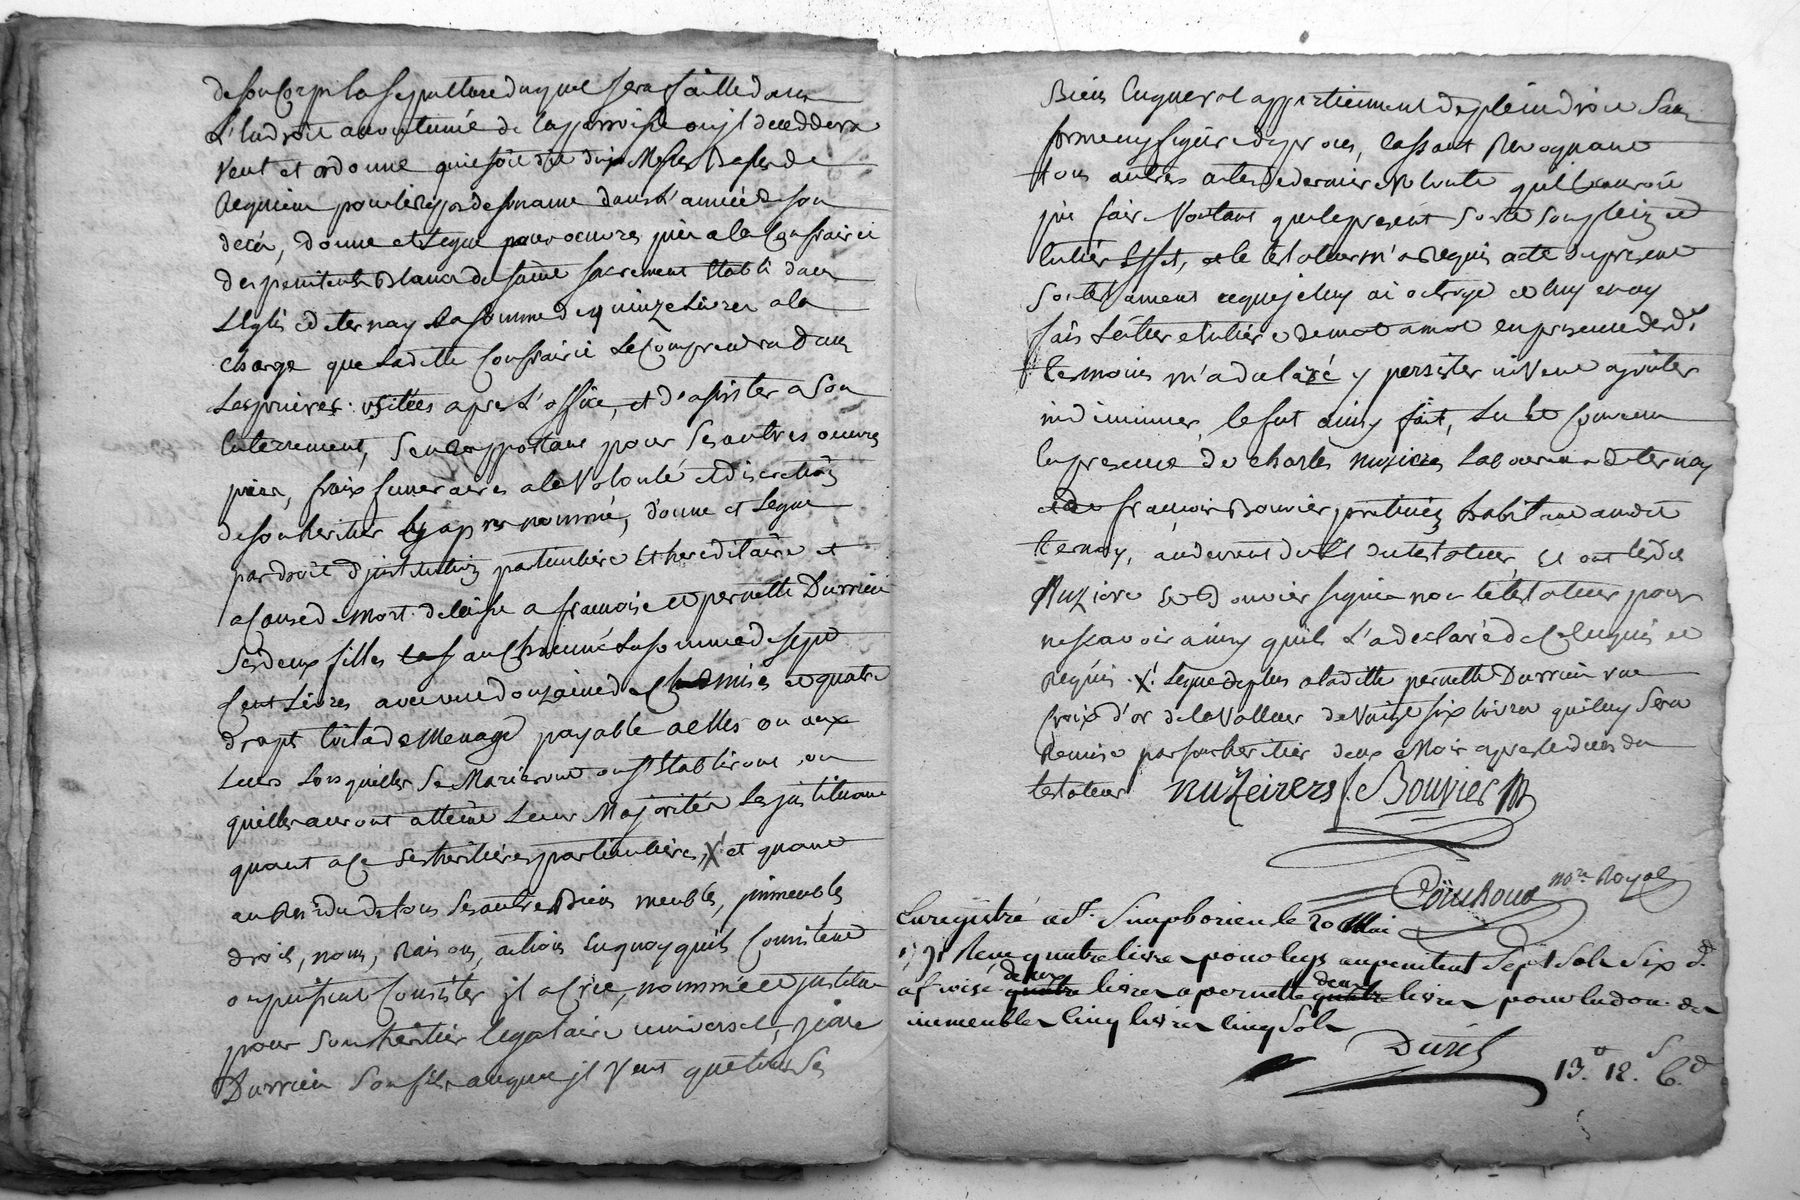 de son Corps la sepulture duquel sera faitte dans
L'Endroit accoutumé de la parroisse ou jl deceddera
Veut et ordonne quil soit dit dix Messes basses de
Requiem pour le repos de son ame dans L'année de son
decés, donne et Legue pour oeuvres pies a la Confrairie
des penitents Blancs du saint sacrement Etabli dans
L'Eglise de ternay La somme de quinze Livres a la
charge que Laditte Confrairie Le Comprendra Dans
Les prieres usitées apres L'office, et d'assister a son
Enterrement, s'en Rapportant pour ses autres oeuvres
pies, fraix funeraires a la Volonté et discretion
de son heritier cy apres nommé, donne et Legue
par droit d'institution particuliere Et hereditaire et
a Cause de mort delaisse a francoise et pernette Durrieu
ses deux filles a Chacune La somme de sept
Cent Livres avec une douzaine de Chemises et quatre
draps toile de Menage payable a elles ou aux
Leurs Lors quelles se Marieront ou s'Etabliront, ou
quelles auront atteint Leur Majorité Les jnstituant
quant a Ce ses heritieres particulieres, X et quant
au Residu de tous ses autres Biens meubles, jmmeubles
droits, noms, Raisons, actions En quoy quils Consistent
ou puissent Consister jl a Crée, nommé et jnstitué
pour son heritier Legataire universel, piere
Durrieu son fils auquel jl Veut que tous ses
Biens Euquer et appartiennent de plein droit Sans
forme ny figure de proces, Cassant Revoquant
tous autres actes de derniere Volonte quil pourroit
avoir fait Voulant que le present sorte son plein et
Entier Effet, et le testateur m'a Requis acte du present
son testament ce que je luy ai octroyé et luy en ay
fait Lecture entiere de mot a mot en presence desdts
temoins m'a declaré y persister ni Veut ajouter
ni diminuer, le fut ainsy fait, Lu et
En presence de Charles nuzieres Laboureur de ternay
et de francois Bouvier praticien habitant audit
ternay, au devant du Lit du testateur, Et ont Lesdts
Nuziere Et Bouvier signé non le testateur pour
ne scavoir ainsy quil L'a declaré de Ce Enquis et
Requis. X Legue de plus a laditte pernette Durrieu une
Croix d'or de la Valleur de Vingt six Livres qui luy sera
Remise par son heritier deux Mois apres le deces du
testateur nuzeirers f. Bouvier
nore Royal
Enregistré a St. Simphorien le 20 Mai
Recu quatre livres pour legs aux penitent Sept Sols Six d.
a fcoise deux quatre livres a pernette deux quatre livres pour ladon de
immeubles Cinq livres Cinq Sols
13. 12. 6.d